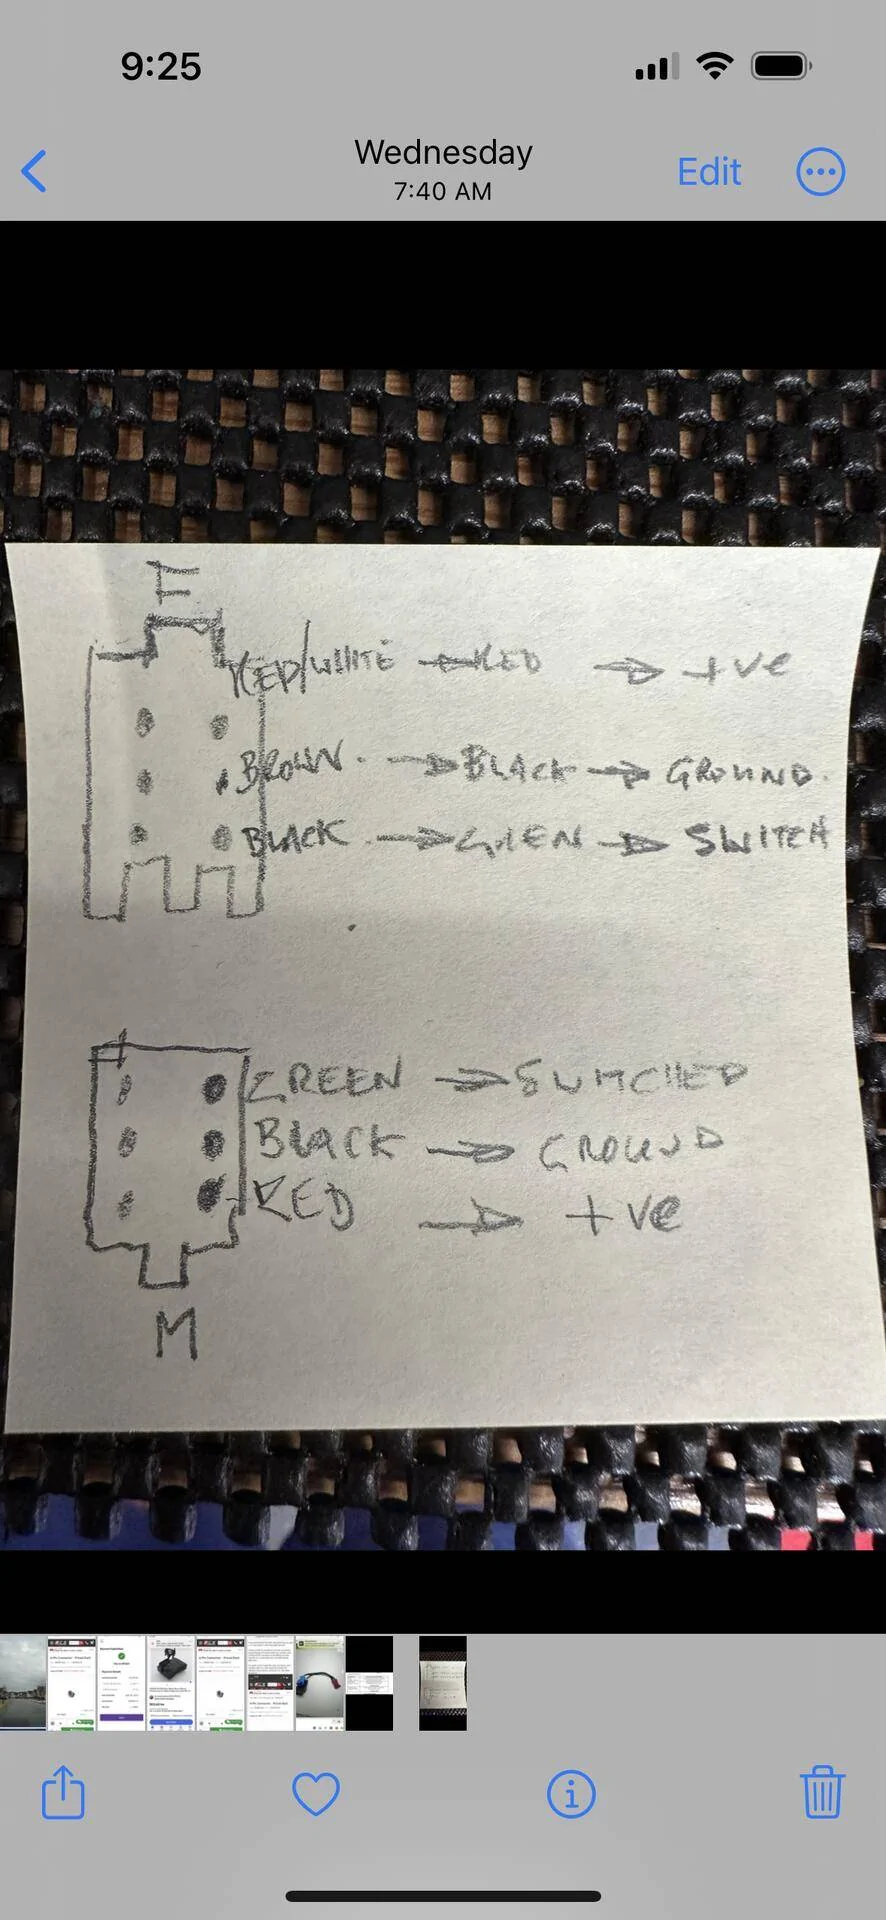 9:25
Wednesday
7:40 AM
Edit
F
RED/WHITE → RED → +ve
BROWN. → BLACK → GROUND.
BLACK → GREEN → SWITCH
GREEN → SWITCHED
BLACK → GROUND
RED → +ve
M